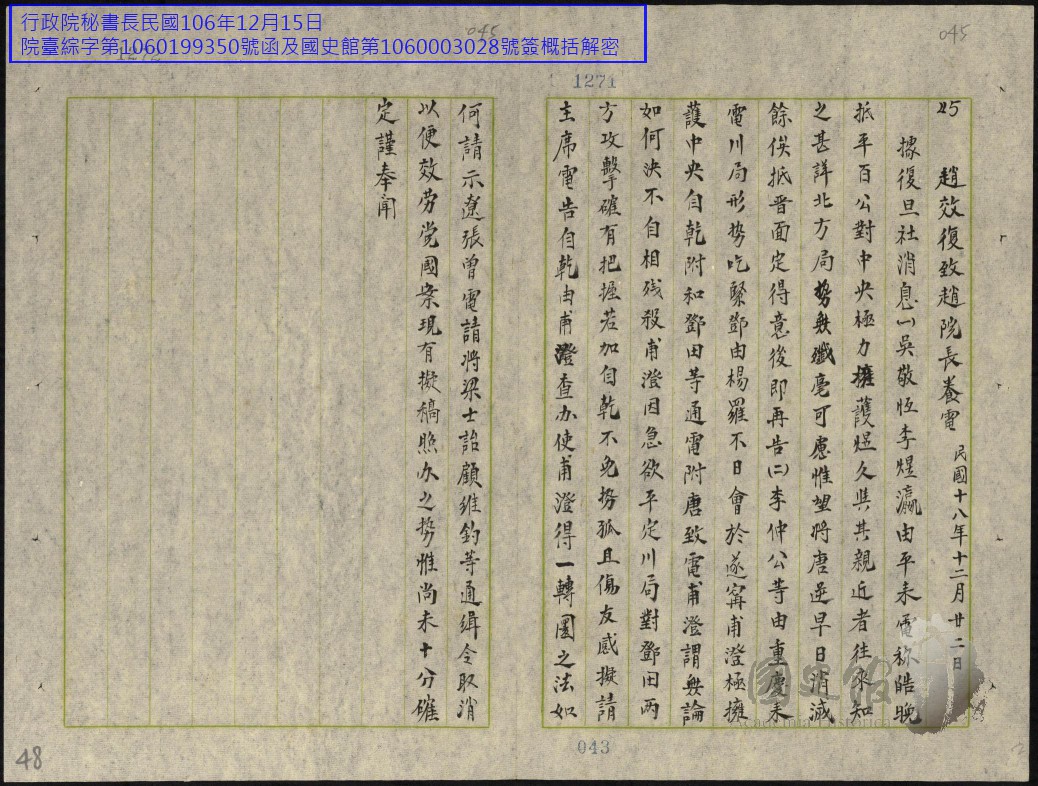 行政院秘書長民國106年12月15日
院臺綜字第1060199350號函及國史館第1060003028號簽概括解密
045
045
1272
1271
25
趙效復致趙院長養電 民國十八年十二月廿二日
據復旦社消息(一)吳敬恆李煜瀛由平來電称皓晚
抵平百公對中央極力擁護煜久與其親近者往來知
之甚詳北方局勢無纖毫可慮惟望將唐逆早日消滅
餘俟抵晋面定得意後即再告(二)李仲公等由重慶來
電川局形势吃緊鄧由楊羅不日會於遂寗甫澄極擁
護中央自乾附和鄧田等通電附唐致電甫澄謂無論
如何決不自相残殺甫澄因急欲平定川局對鄧田两
方攻擊確有把握若加自乾不免势孤且傷友感擬請
主席電告自乾由甫澄查办使甫澄得一轉圜之法如
何請示遼張曾電請將梁士詒顧維鈞等通緝令取消
以便效劳党國案現有擬稿照办之势惟尚未十分確
定謹奉聞
國史館
Academia Historica
043
48